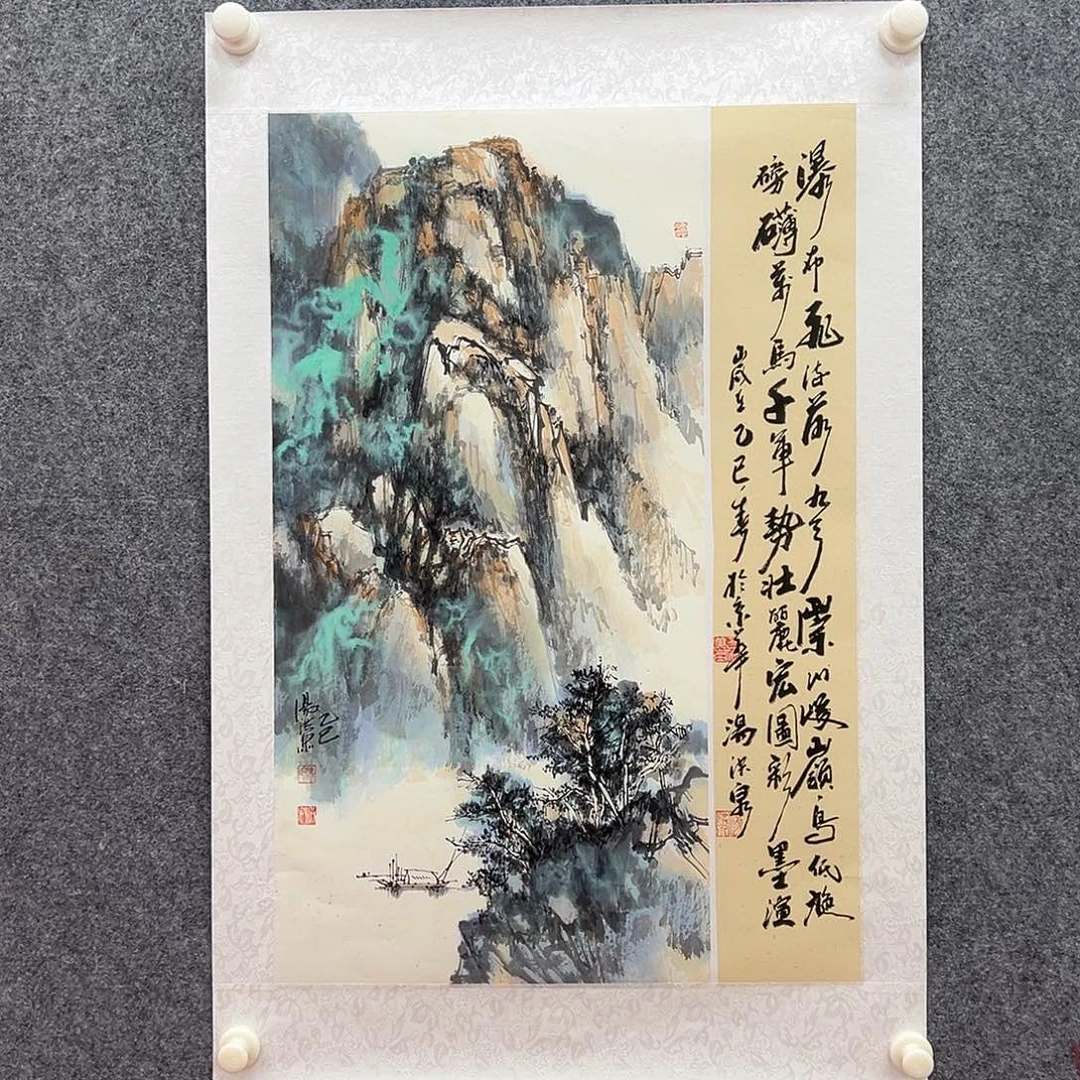 瀑布飛流落九天山峻嶺鳥低旋
磅礴萬馬千軍勢壯麗宏圖彩墨演
歲在乙巳春於京華湯泉
乙巳
湯泉